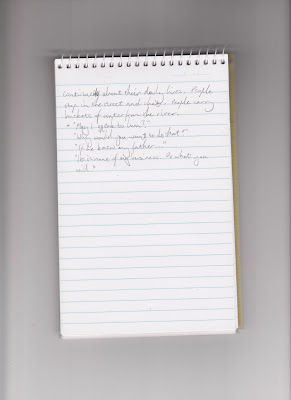 continued about their daily lives. People
stop in the street and chat. People carry
buckets of water from the river.
"May I speak to him?"
"Why would you want to do that?"
"If he knew my father..."
"It's none of my business. Do what you
will."